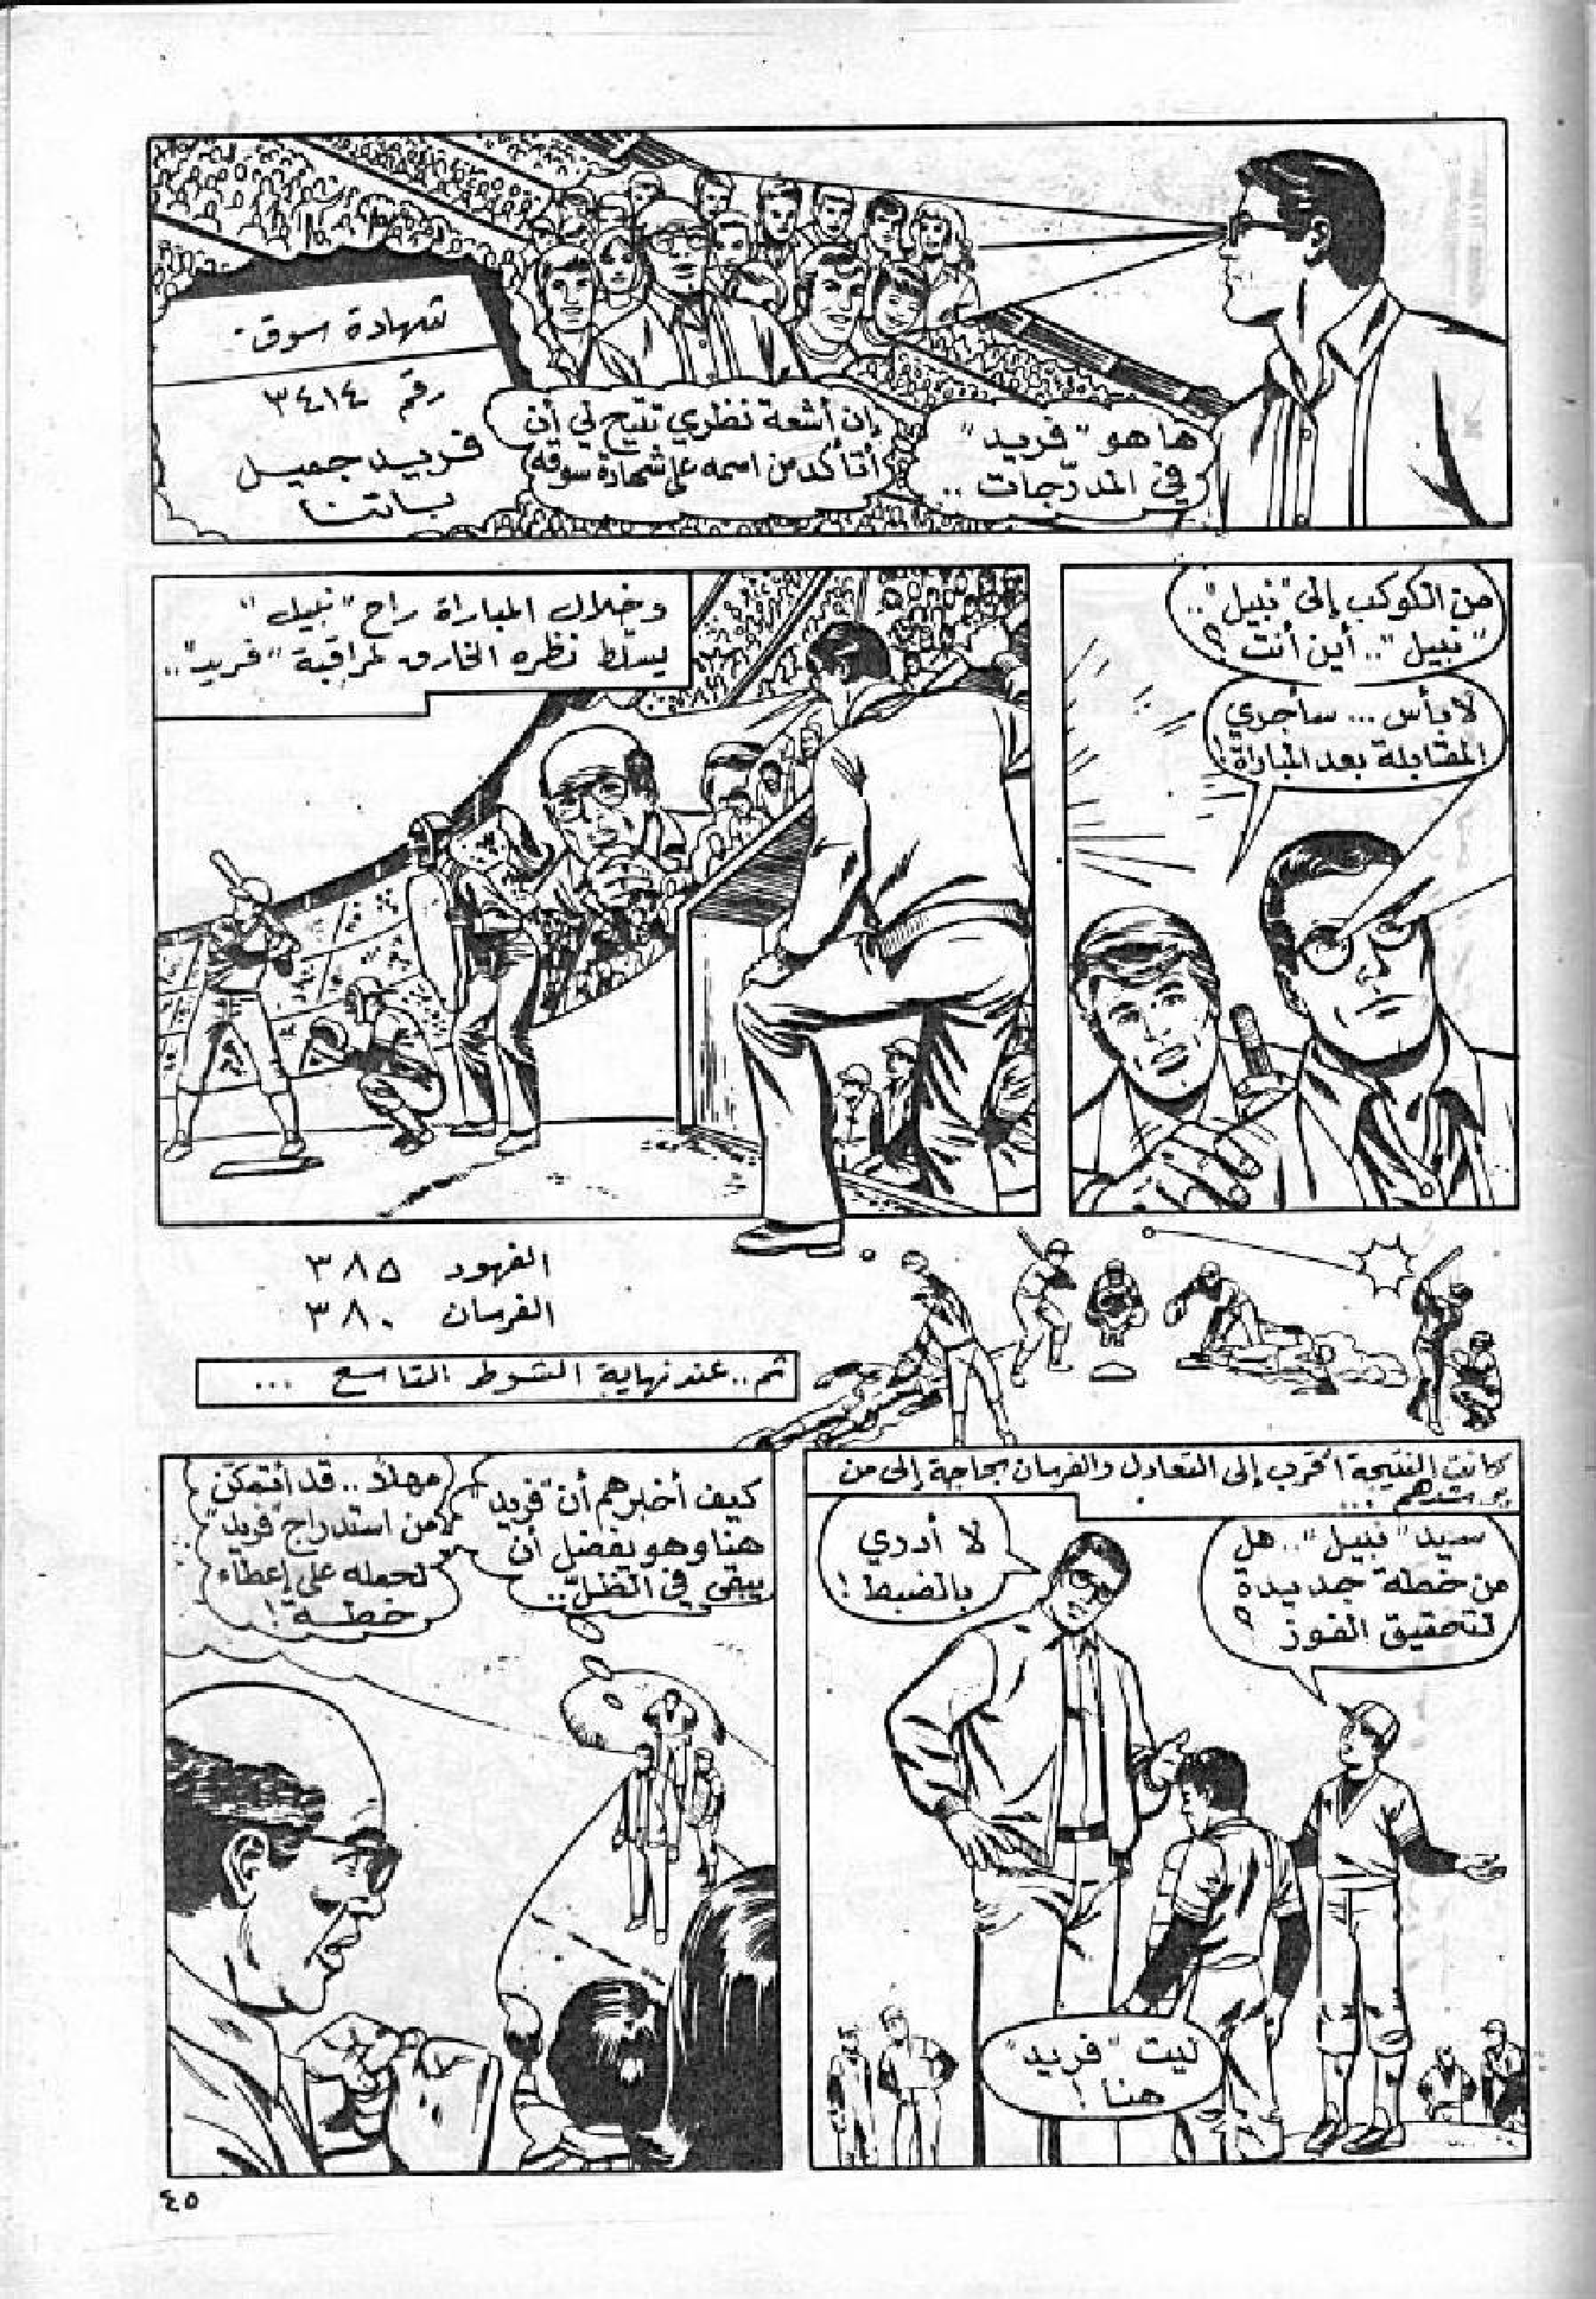 ها هو "فريد"
في المدرّجات ..
إن أشعة نظري تتيح لي أن
أتأكد من اسمه على شهادة سوقه
شهادة سوق
رقم ٣٤١٤
فريد جميل
باتنا
من الكوكب إلى "نبيل"..
"نبيل".. أين أنت ؟
لا بأس ... سأجري
المقابلة بعد المباراة!
وخلال المباراة راح "نبيل"
يسلّط نظره الخارق لمراقبة "فريد"..
الفهود ٣٨٥
الفرسان ٣٨٠
ثم.. عند نهاية الشوط التاسع ...
كانت النتيجة أقرب إلى التعادل والفرسان بحاجة إلى من
يرشدهم ...
سيد "نبيل".. هل
من خطة جديدة
لتحقيق الفوز ؟
لا أدري
بالضبط !
ليت "فريد"
هنا !
كيف أخبرهم أن "فريد"
هنا وهو يفضل أن
يبقى في الظلّ ..
مهلاً .. قد أتمكّن
من استدراج "فريد"
لحمله على إعطاء
خطة !
٤٥